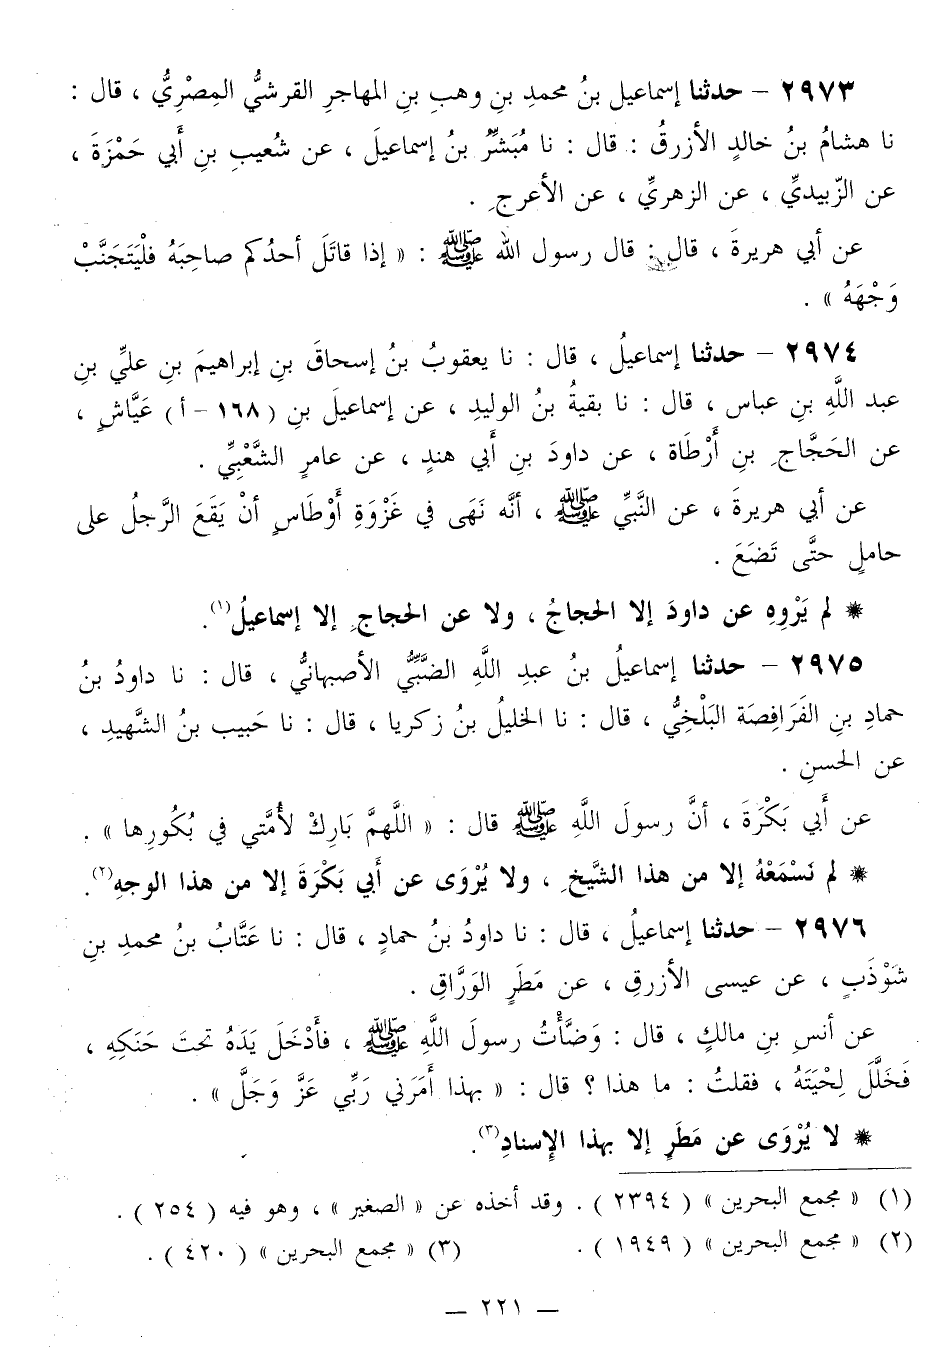 ٢٩٧٣ – حدثنا إسماعيل بنُ محمدِ بنِ وهبِ بنِ المهاجرِ القرشيُّ المِصْرِيُّ ، قال :
نا هشامُ بنُ خالدٍ الأزرقُ : قال : نا مُبَشِّرُ بنُ إسماعيلَ ، عن شُعيبِ بنِ أَبي حَمْزَةَ ،
عن الزّبيديِّ ، عن الزهريِّ ، عن الأعرجِ .
عن أبي هريرةَ ، قال : قال رسول الله ﷺ : « إذا قاتَلَ أحدُكم صاحِبَهُ فلْيَتَجَنَّبْ
وَجْهَهُ » .
٢٩٧٤ – حدثنا إسماعيلُ ، قال : نا يعقوبُ بنُ إسحاقَ بنِ إبراهيمَ بنِ عليِّ بنِ
عبد اللَّهِ بنِ عباس ، قال : نا بقيةُ بنُ الوليدِ ، عن إسماعيلَ بنِ ( ١٦٨ – أ ) عَيَّاشٍ ،
عن الحَجَّاجِ بنِ أَرْطَاة ، عن داودَ بنِ أبي هندٍ ، عن عامرٍ الشَّعْبِيِّ .
عن أبي هريرةَ ، عن النَّبيِّ ﷺ ، أنَّه نَهَى في غَزْوَةِ أَوْطَاسٍ أنْ يَقَعَ الرَّجلُ على
حاملٍ حتَّى تَضَعَ .
* لم يَرْوِهِ عن داودَ إلا الحجاجُ ، ولا عن الحجاجِ إلا إسماعيلُ(١).
٢٩٧٥ – حدثنا إسماعيلُ بنُ عبدِ اللَّهِ الضَّبِّيُّ الأصبهانيُّ ، قال : نا داودُ بنُ
حمادِ بنِ الفَرَافِصَة البَلْخِيُّ ، قال : نا الخليلُ بنُ زكريا ، قال : نا حَبيب بنُ الشَّهيدِ ،
عن الحسنِ .
عن أَبي بَكْرَةَ ، أنَّ رسولَ اللَّهِ ﷺ قال : « اللَّهمَّ بَارِكْ لأُمَّتي في بُكُورِها » .
* لم نَسْمَعْهُ إلا من هذا الشَّيخِ ، ولا يُرْوَى عن أَبي بَكْرَةَ إلا من هذا الوجهِ(٢).
٢٩٧٦ – حدثنا إسماعيلُ ، قال : نا داودُ بنُ حمادٍ ، قال : نا عَتَّابُ بنُ محمدِ بنِ
شَوْذَبٍ ، عن عيسى الأزرقِ ، عن مَطَرٍ الوَرَّاقِ .
عن أنسِ بنِ مالكٍ ، قال : وَضَّأْتُ رسولَ اللَّهِ ﷺ ، فأَدْخَلَ يَدَهُ تحتَ حَنَكِهِ ،
فَخَلَّلَ لِحْيَتَهُ ، فقلتُ : ما هذا ؟ قال : « بهذا أَمَرَني رَبِّي عَزَّ وَجَلَّ » .
* لا يُرْوَى عن مَطَرٍ إلا بهذا الإسنادِ(٣).
(١) « مجمع البحرين » ( ٢٣٩٤ ) . وقد أخذه عن « الصغير » ، وهو فيه ( ٢٥٤ ) .
(٢) « مجمع البحرين » ( ١٩٤٩ ) . (٣) « مجمع البحرين » ( ٤٢٠ ) .
— ٢٢١ —